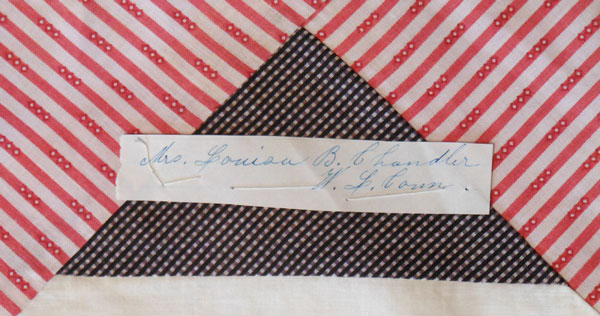 Mrs. Louisa B. Chandler
W. L. Conn.